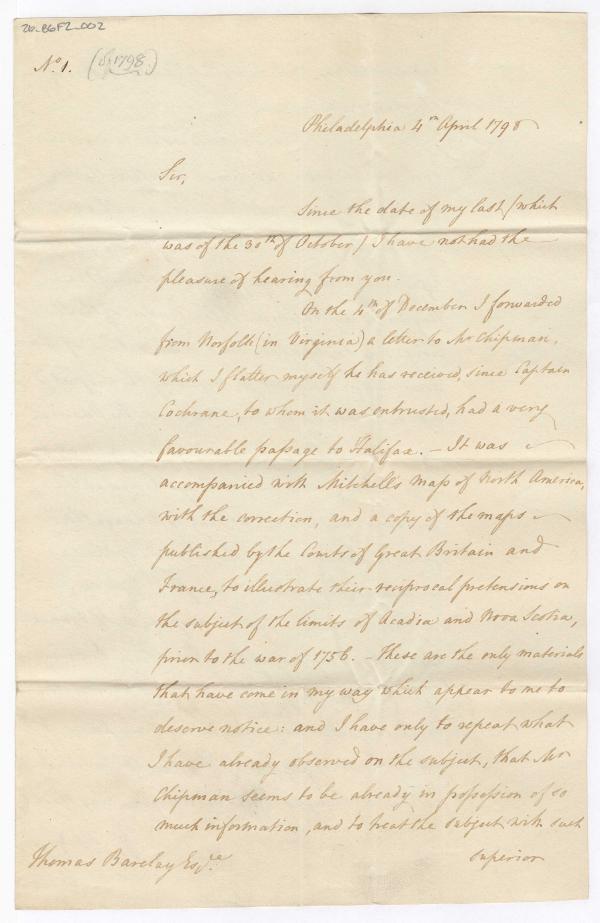 26-86F2-002
No. 1. (1798)
Philadelphia 4th April 1798
Sir,
Since the date of my last (which
was of the 30th of October) I have not had the
pleasure of hearing from you.
On the 4th of December I forwarded
from Norfolk (in Virginia) a letter to Mr Chipman,
which I flatter myself he has received, since Captain
Cochrane, to whom it was entrusted, had a very
favourable passage to Halifax. — It was
accompanied with Mitchell's map of North America,
with the correction, and a copy of the maps
published by the Courts of Great Britain and
France, to illustrate their reciprocal pretensions on
the subject of the limits of Acadia and Nova Scotia,
prior to the war of 1756. — These are the only materials
that have come in my way which appear to me to
deserve notice: and I have only to repeat what
I have already observed on the subject, that Mr
Chipman seems to be already in possession of so
much information, and to treat the subject with such
superior
Thomas Barclay Esqre